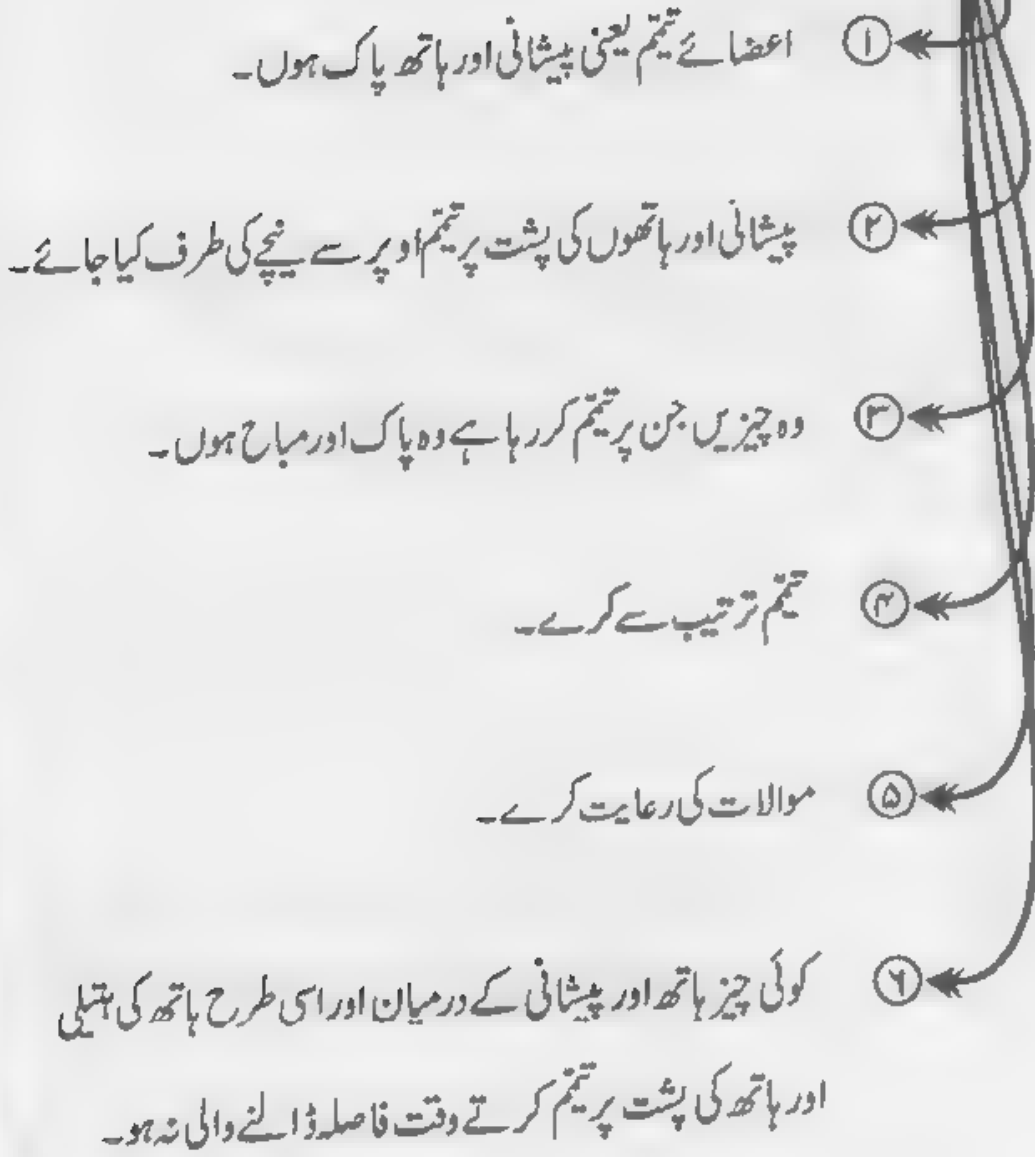 ① اعضائے تیمّم یعنی پیشانی اور ہاتھ پاک ہوں۔
② پیشانی اور ہاتھوں کی پشت پر تیمّم اوپر سے نیچے کی طرف کیا جائے۔
③ وہ چیزیں جن پر تیمّم کر رہا ہے وہ پاک اور مباح ہوں۔
④ تیمّم ترتیب سے کرے۔
⑤ موالات کی رعایت کرے۔
⑥ کوئی چیز ہاتھ اور پیشانی کے درمیان اور اسی طرح ہاتھ کی ہتیلی
اور ہاتھ کی پشت پر تیمّم کرتے وقت فاصلہ ڈالنے والی نہ ہو۔